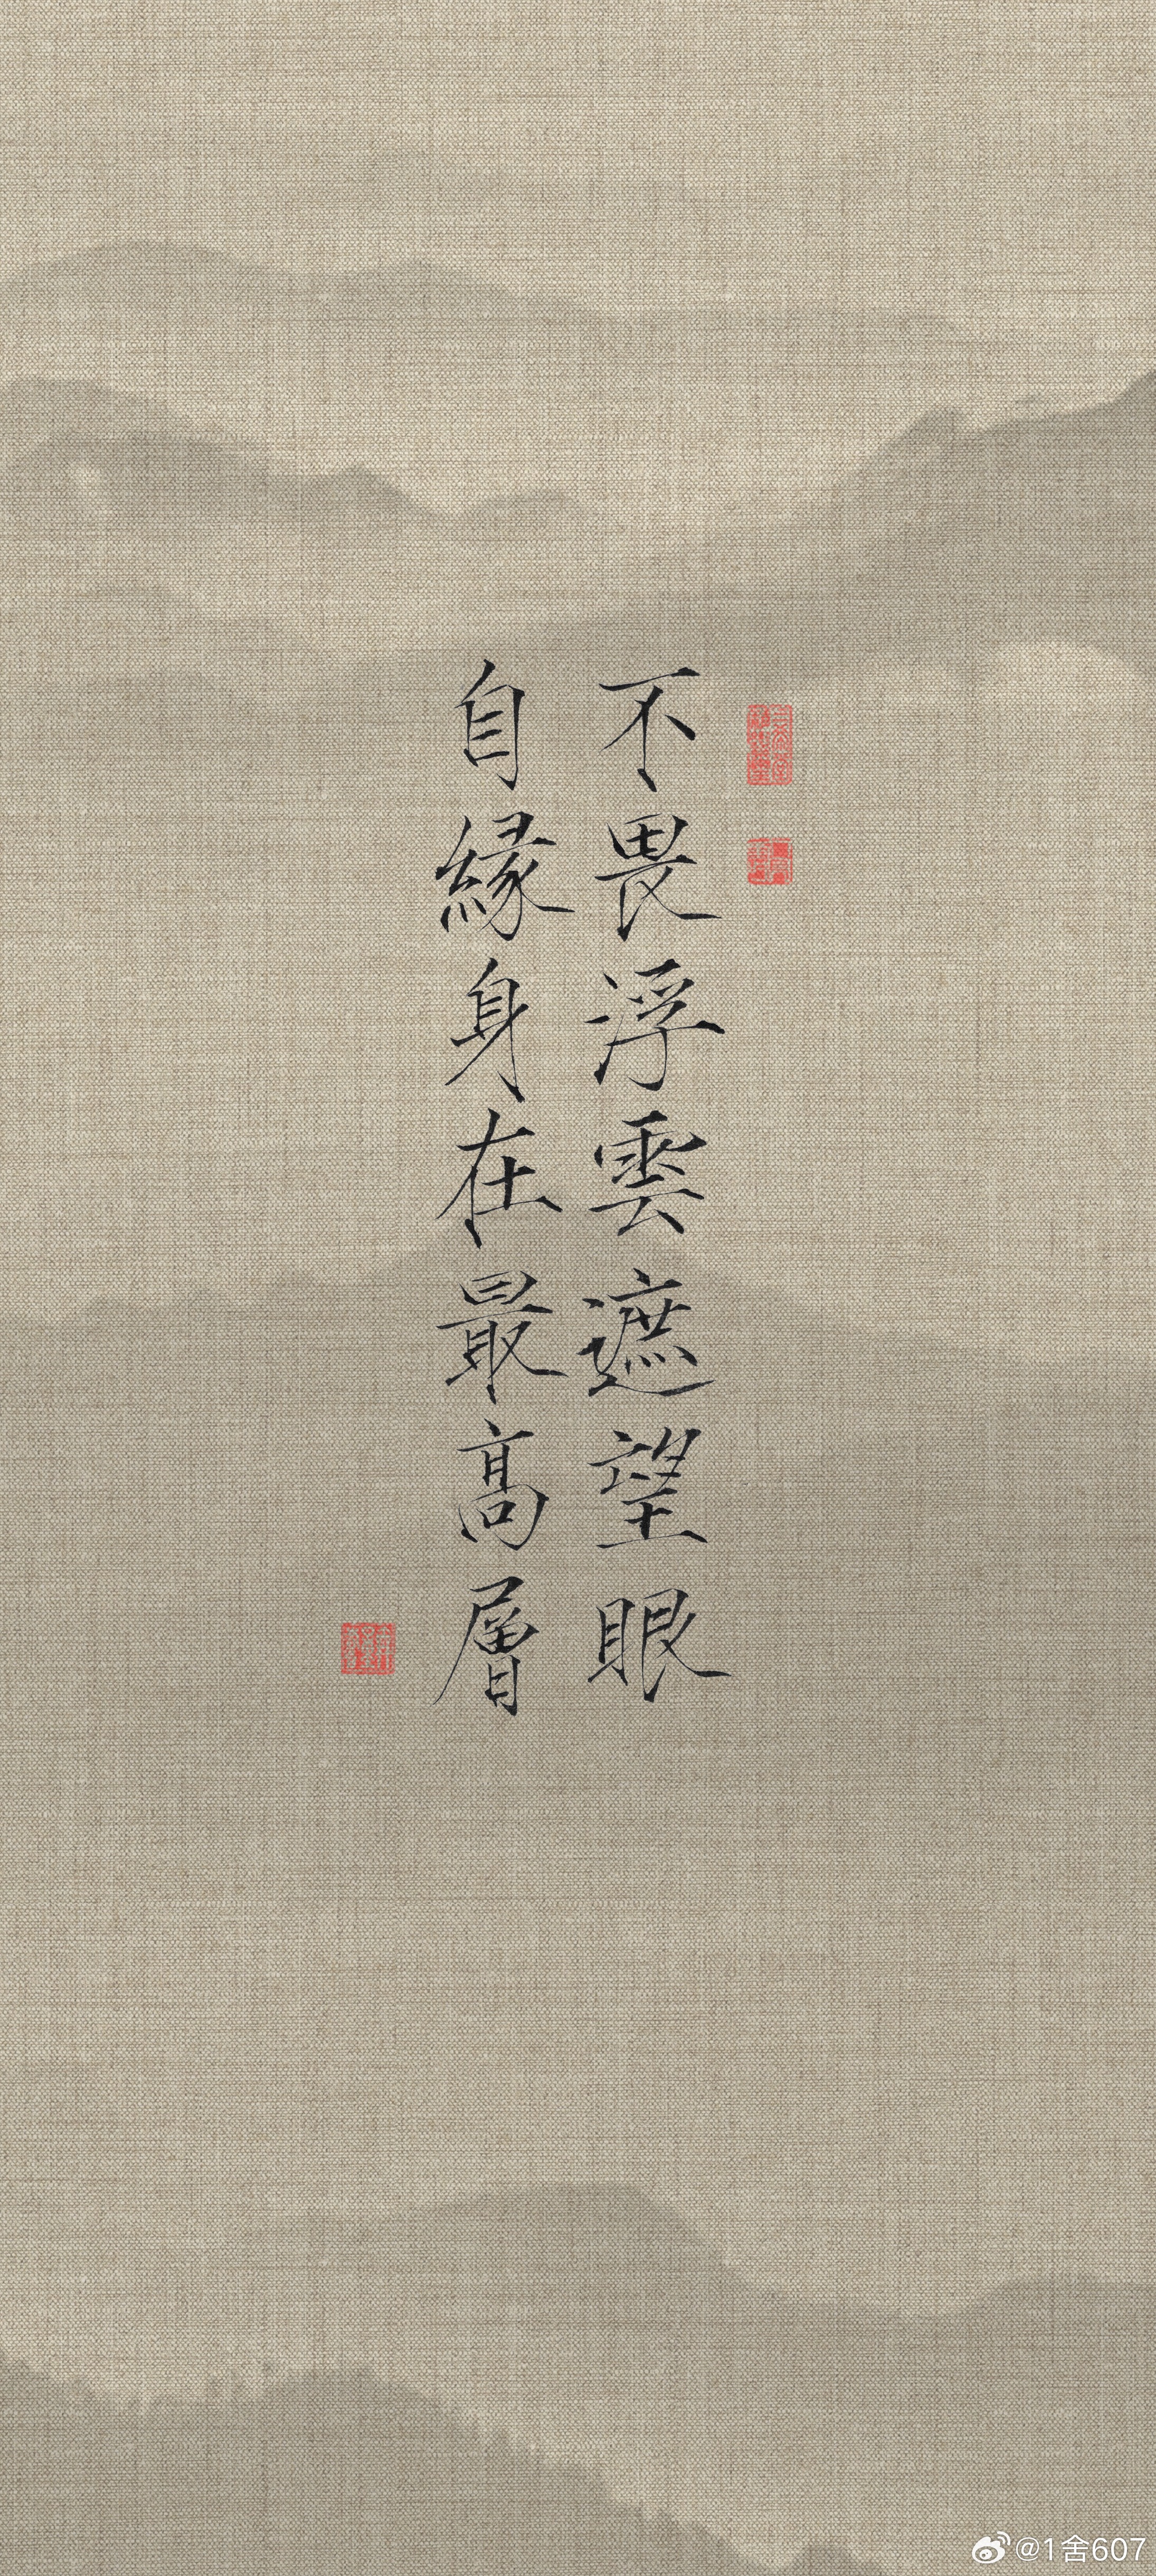 不畏浮雲遮望眼
自緣身在最高層
@1舍607